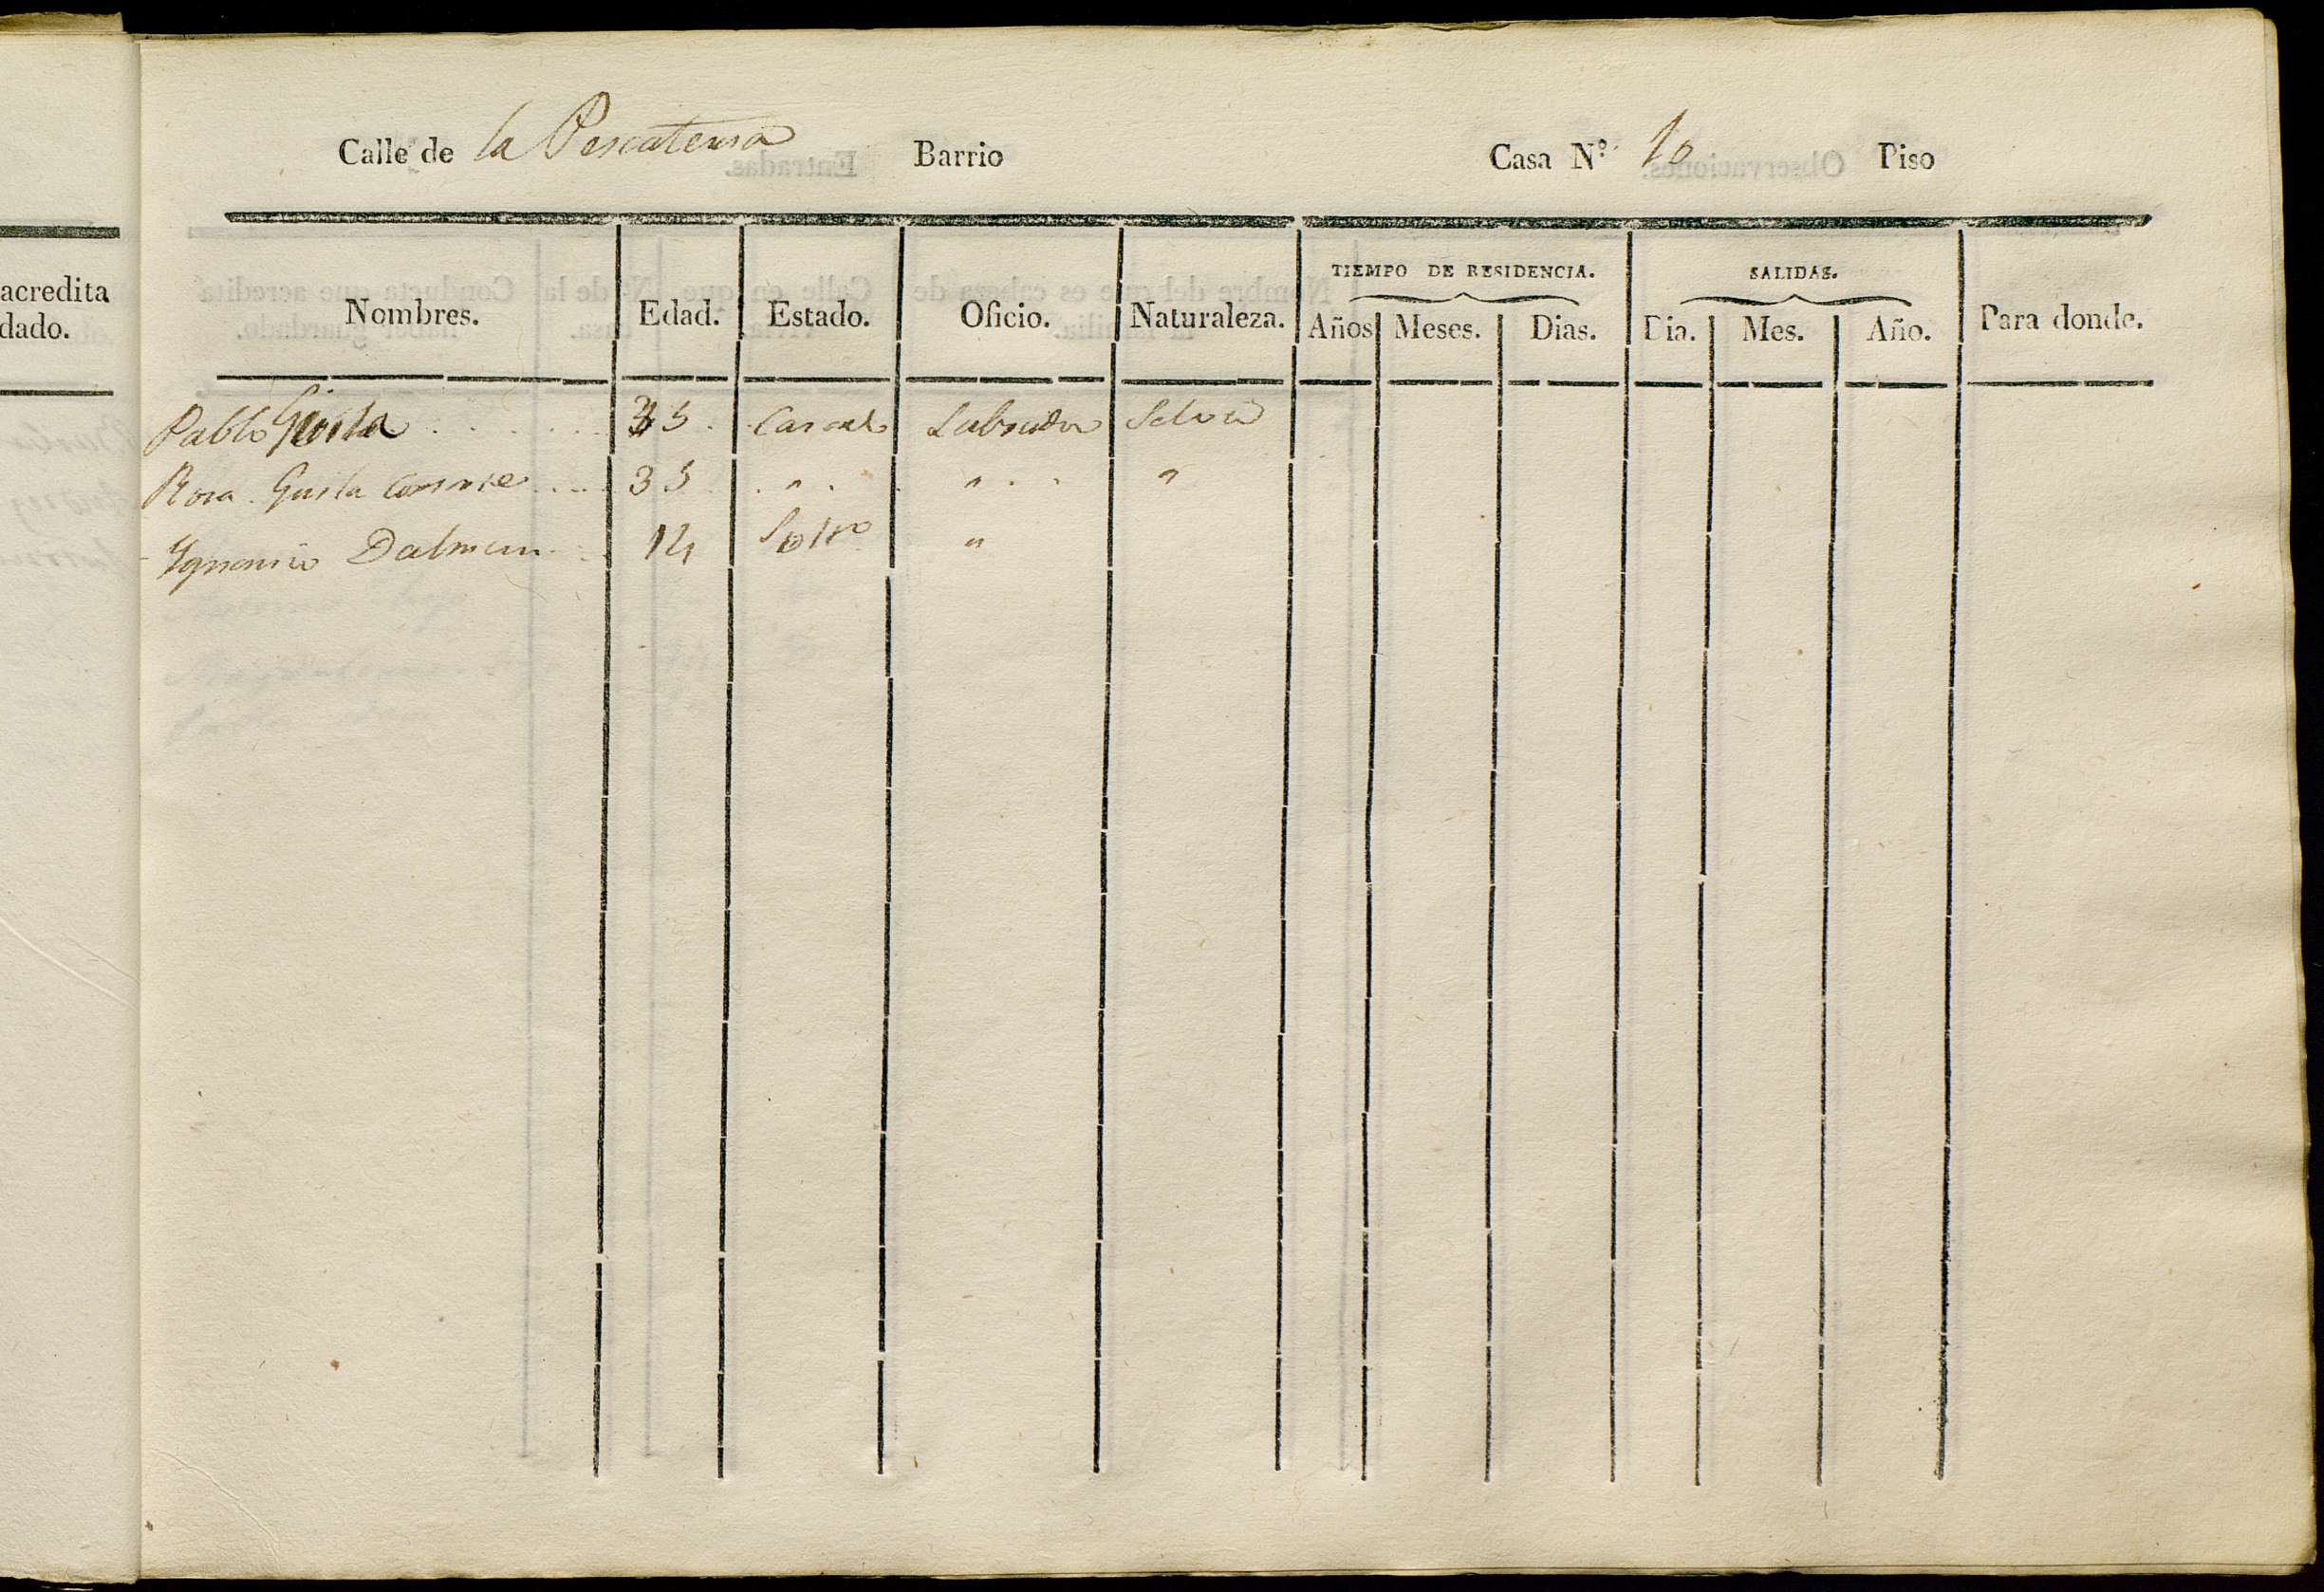 acredita
dado.
Calle de la Pescateria Barrio Casa Nº 10 Piso
TIEMPO DE RESIDENCIA. SALIDAS.
Nombres. Edad. Estado. Oficio. Naturaleza. Años Meses. Dias. Dia. Mes. Año. Para donde.
Pablo 35 Casado Labrador Selva
Rosa Guila consorte 35 " " "
Ygnacio Dalmau 14 Soltro "